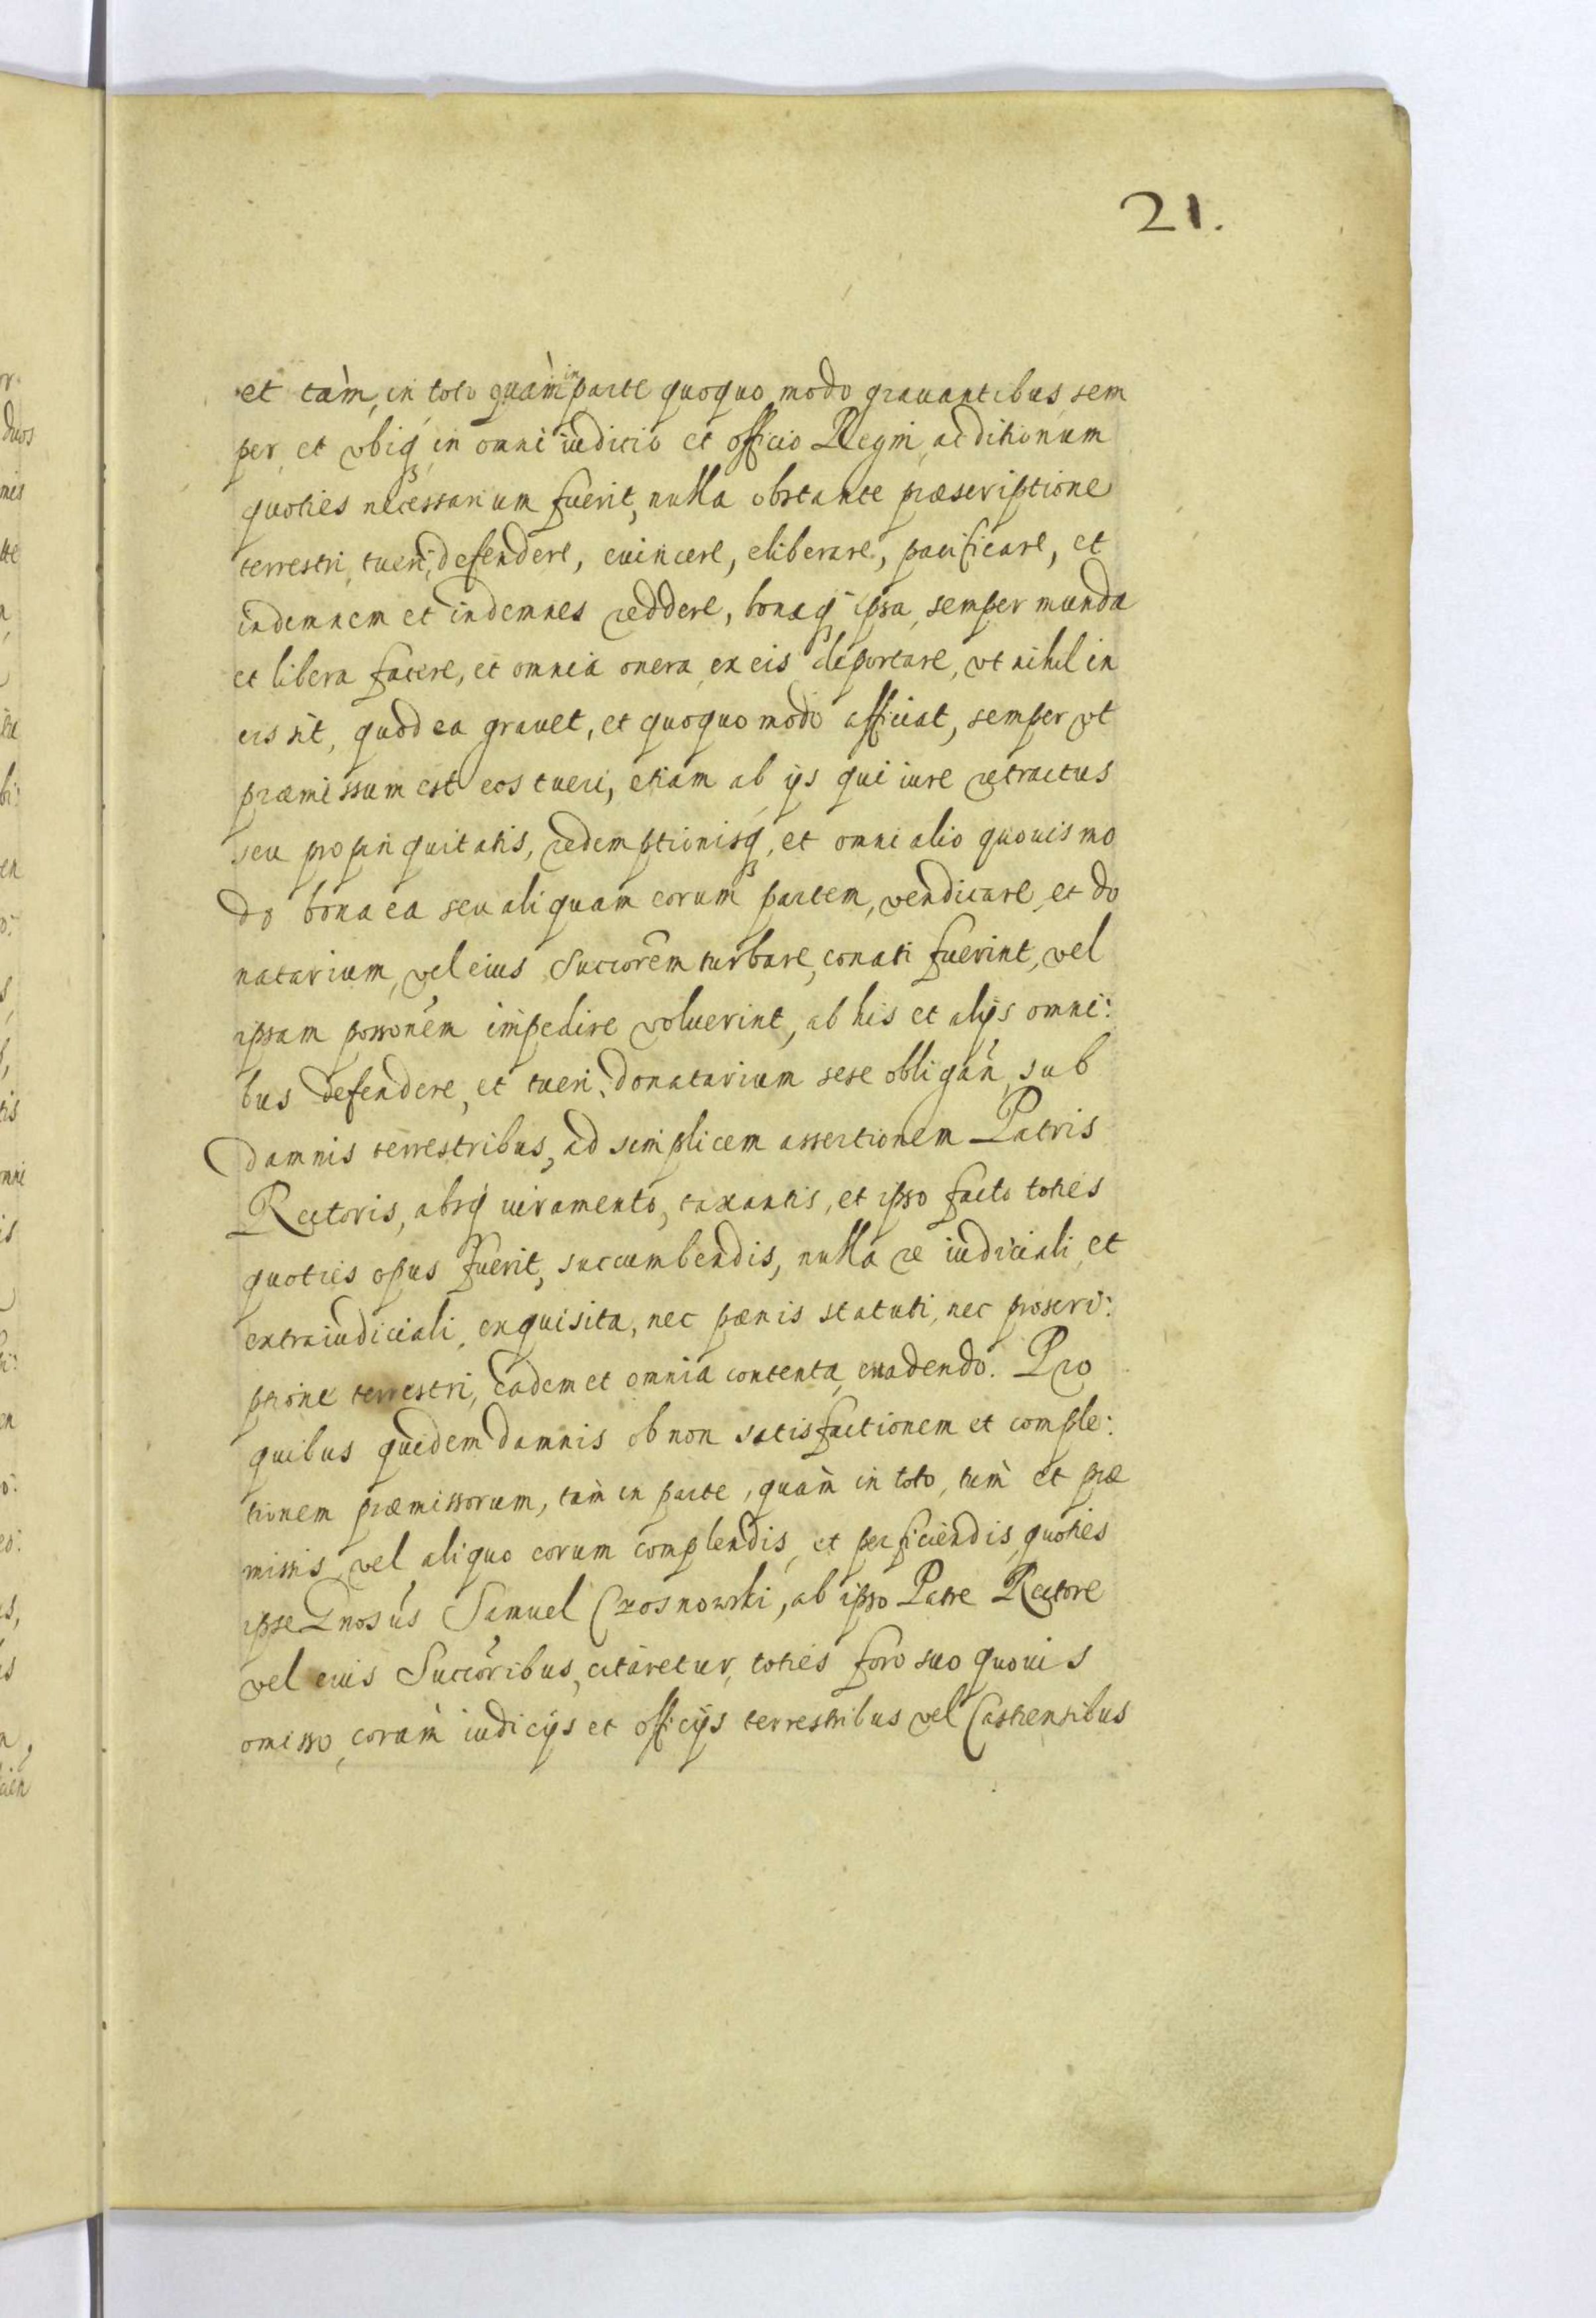 21.
et tàm, in toto quàm in parte quoquo modo grauantibus, sem
per, et vbiq₃, in omni iudicio et officio Regni, ac ditionum
quoties necessarium fuerit, nulla obstante præscriptione
terrestri, tueri, defendere, euincere, eliberare, pacificare, et
indemnem et indemnes reddere, bonaq₃ ipsa, semper munda
et libera facere, et omnia onera, ex eis deportare, vt nihil in
eis sit, quod ea grauet, et quoquo modo afficiat, semper vt
præmissum est eos tueri, etiam ab ijs qui iure retractus
seu propinquitatis, redemptionisq₃, et omni alio quouis mo
do bona ea seu aliquam eorum partem, vendicare, et do
natarium, vel eius Succorẽm turbare, conati fuerint, vel
ipsam possonẽm impedire voluerint, ab his et alijs omni:
bus defendere, et tueri, donatarium sese obligan̄, sub
damnis terrestribus, ad simplicem assertionem Patris
Rectoris, absq₃ iuramento, taxantis, et ipso facto toties
quoties opus fuerit, succumbendis, nulla re iudiciali, et
extraiudiciali, exquisita, nec pænis statuti, nec proscri:
ptione terrestri, eadem et omnia contenta, euadendo. Pro
quibus quidem damnis ob non satisfactionem et comple:
tionem præmissorum, tàm in parte, quàm in toto, tùm et præ
missis, vel aliquo eorum complendis, et perficiendis, quoties
ipse Gnosũs Samuel Czosnowski, ab ipso Patre Rectore
vel eius Succorĩbus, citaretur, toties foro suo quouis
omisso, coràm iudicijs et officijs terrestribus vel Castrensibus